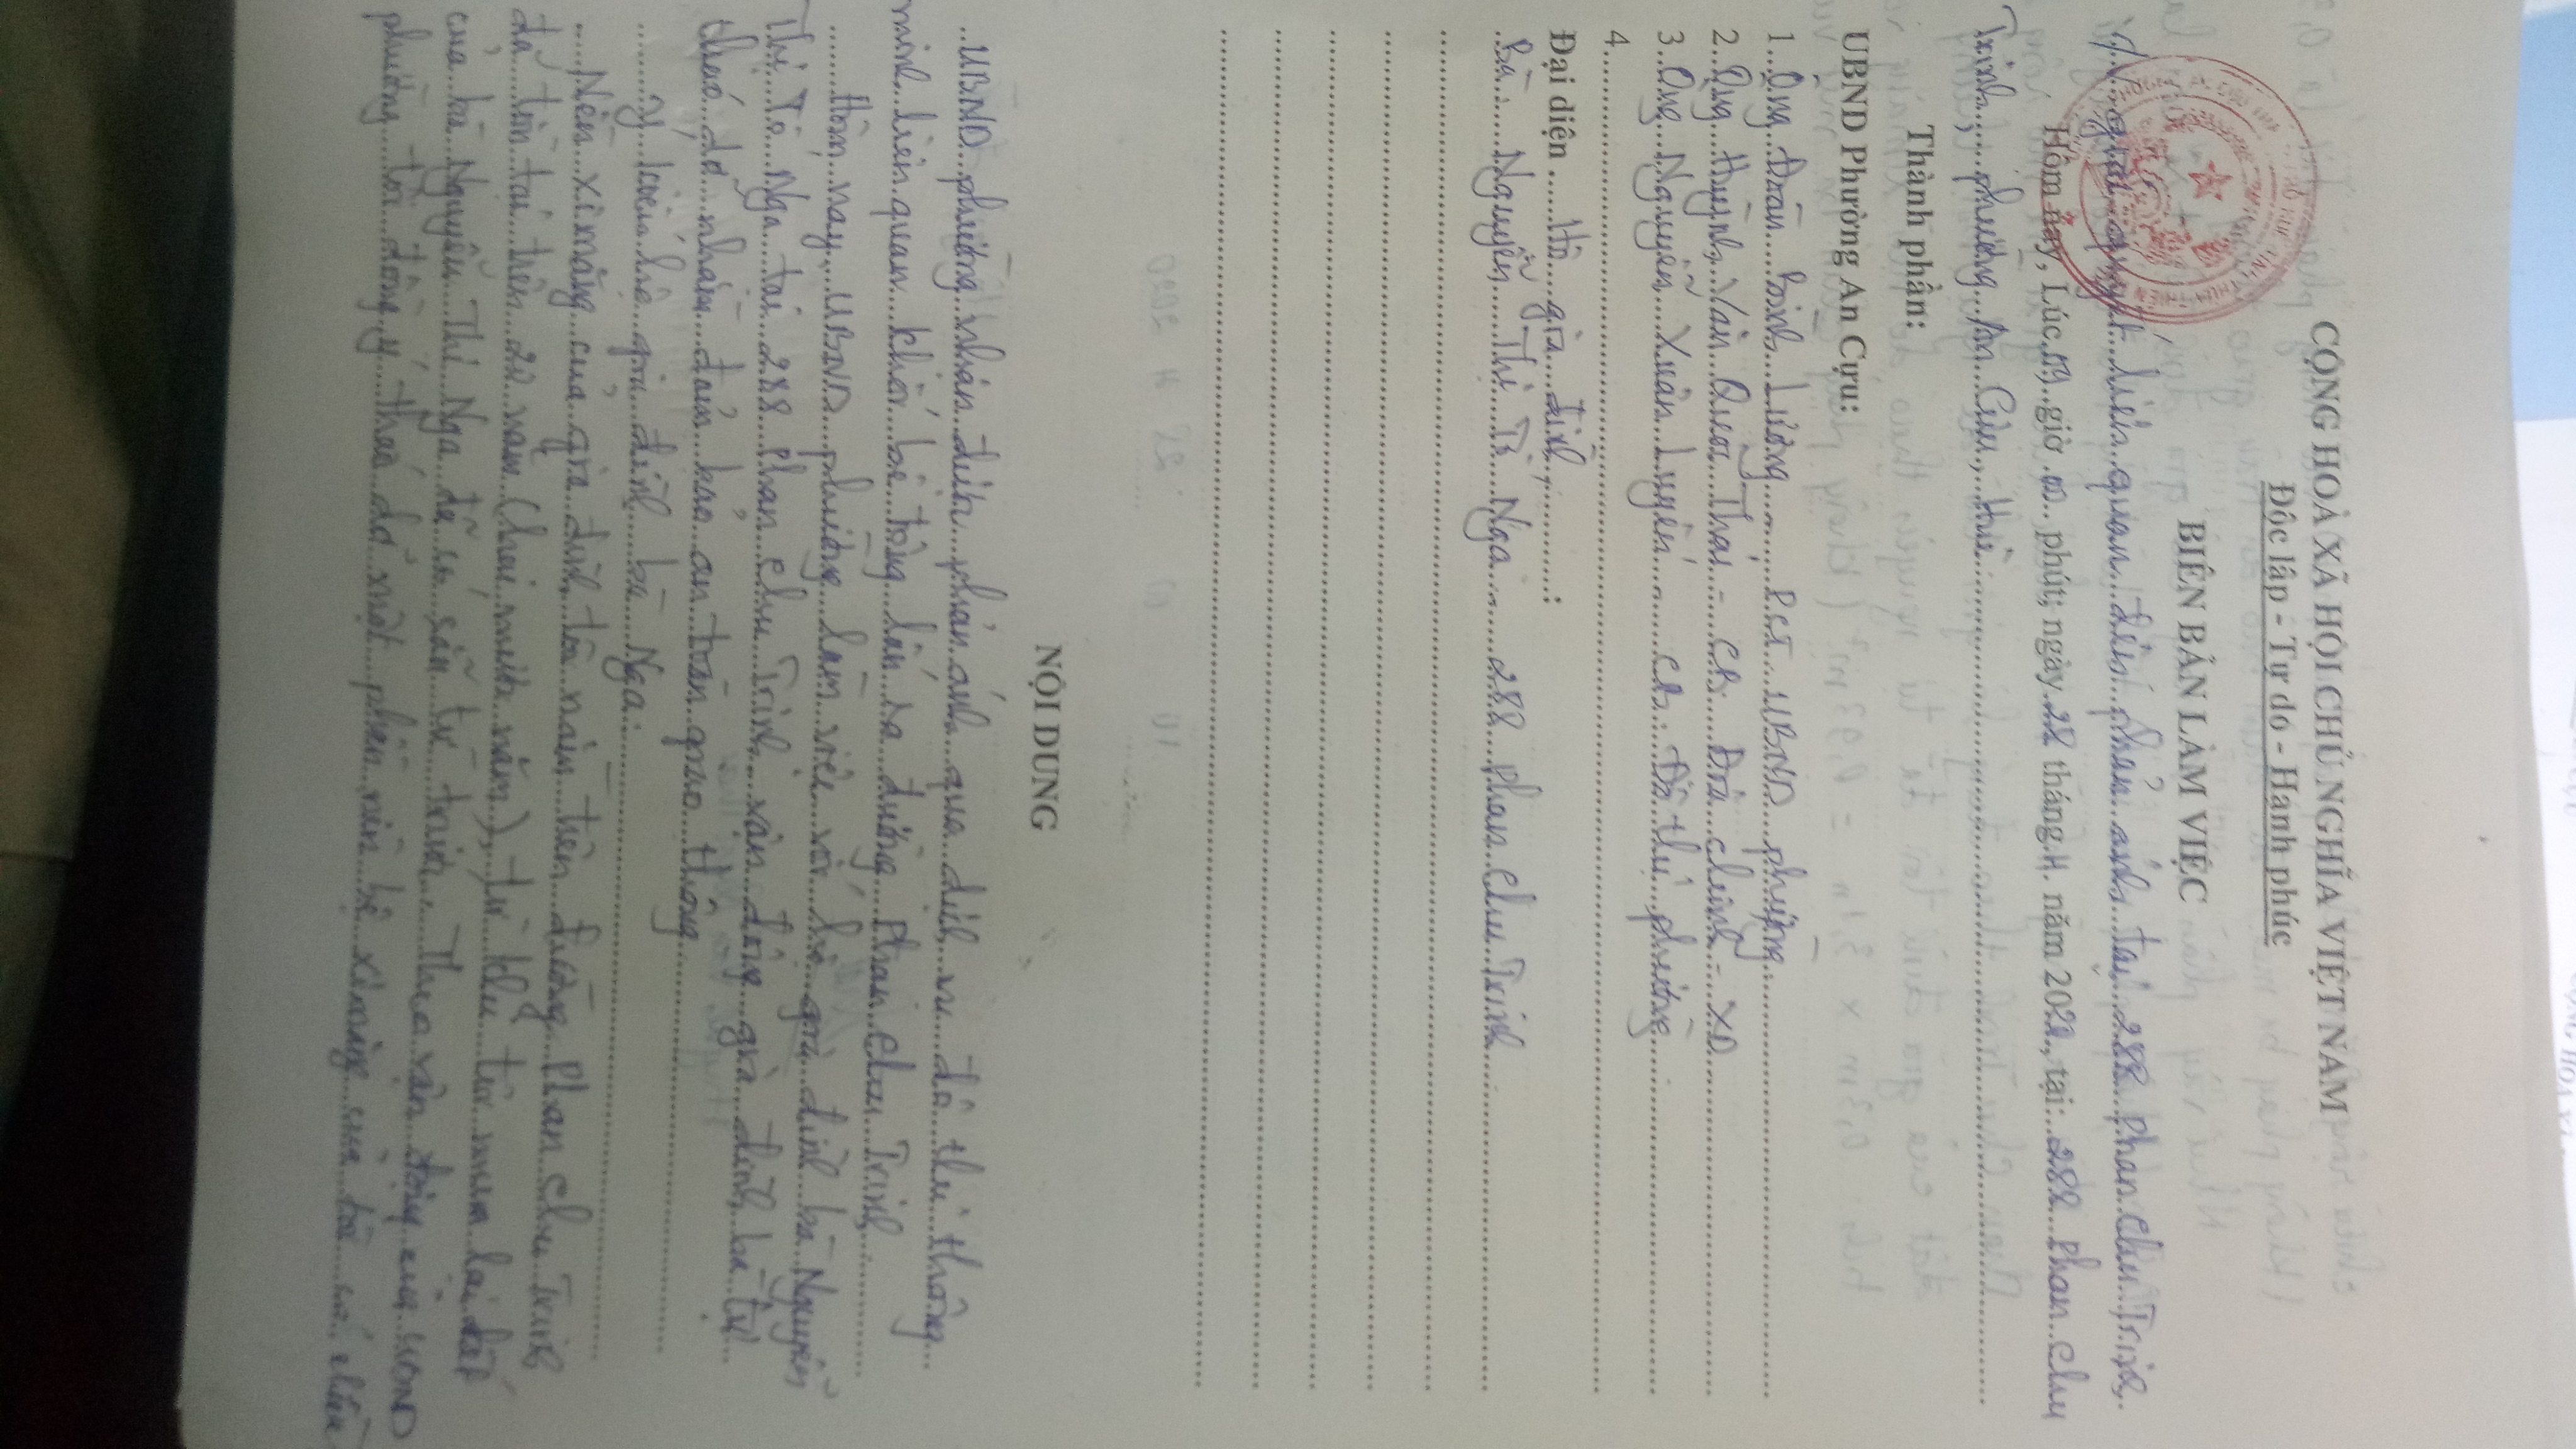 CỘNG HOÀ XÃ HỘI CHỦ NGHĨA VIỆT NAM
Độc lập - Tự do - Hạnh phúc
BIÊN BẢN LÀM VIỆC
V/v giải quyết liên quan đến phản ánh tại 288 Phan Chu Trinh.
Hôm nay, Lúc giờ 00 phút; ngày 28 tháng 4 năm 2022, tại: 288 Phan Chu
Trinh, phường An Cựu, Huế
Thành phần:
UBND Phường An Cựu:
1. Ông Đoàn Bình Lương - PCT UBND phường
2. Ông Huỳnh Văn Quốc Thái - CB Địa chính - XD
3. Ông Nguyễn Xuân Luyến - CB. Đô thị phường
4.
Đại diện Hộ gia đình :
Bà: Nguyễn Thị Tố Nga - 288 Phan Chu Trinh
NỘI DUNG
UBND phường nhận được phản ánh qua dịch vụ đô thị thông
minh liên quan khối bê tông lấn ra đường Phan Chu Trinh.
Hôm nay, UBND phường làm việc với hộ gia đình bà Nguyễn
Thị Tố Nga tại 288 Phan Chu Trinh vận động gia đình bà tự
tháo dỡ nhằm đảm bảo an toàn giao thông.
Ý kiến hộ gia đình bà Nga:
Nền xi măng của gia đình tôi nằm trên đường Phan Chu Trinh
đã tồn tại trên 20 năm (hai mươi năm), từ khi tôi mua lại đất
của bà Nguyễn Thị Nga đã có sẵn từ trước. Theo vận động của UBND
phường tôi đồng ý tháo dỡ một phần nền bê xi măng của tôi có chiều